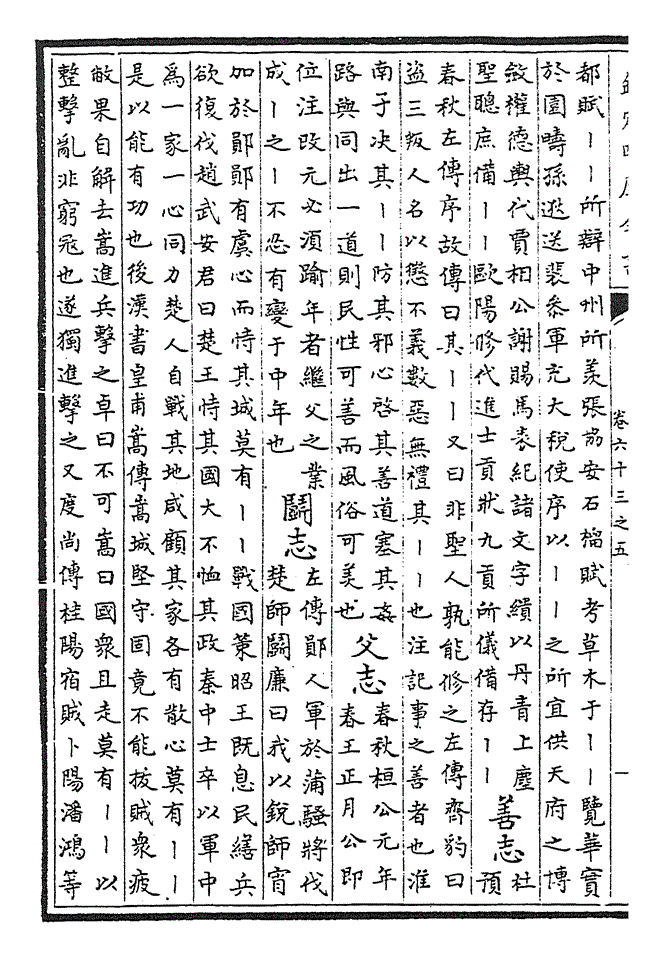 欽定四庫全書
卷六十三之五
一
都賦丨丨所辯中州所羨張協安石榴賦考草木于丨丨覽華實
於園疇孫逖送裴參軍充大稅使序以丨丨之所宜供天府之博
斂權德輿代賈相公謝賜馬表紀諸文字繢以丹青上塵
聖聰庶備丨丨歐陽修代進士貢狀九貢所儀備存丨丨
善志
杜
預
春秋左傳序故傳曰其丨丨又曰非聖人孰能修之左傳齊豹曰
盜三叛人名以懲不義數惡無禮其丨丨也注記事之善者也淮
南子決其丨丨防其邪心啓其善道塞其姦
路與同出一道則民性可善而風俗可美也
父志
春秋桓公元年
春王正月公即
位注改元必須踰年者繼父之業
成丨之丨不忍有變于中年也
鬭志
左傳鄖人軍於蒲騷將伐
楚師鬭廉曰我以銳師宵
加於鄖鄖有虞心而恃其城莫有丨丨戰國策昭王既息民繕兵
欲復伐趙武安君曰楚王恃其國大不恤其政秦中士卒以軍中
爲一家一心同力楚人自戰其地咸顧其家各有散心莫有丨丨
是以能有功也後漢書皇甫嵩傳嵩城堅守固竟不能拔賊衆疲
敝果自解去嵩進兵擊之卓曰不可嵩曰國衆且走莫有丨丨以
整擊亂非窮冦也遂獨進擊之又度尚傳桂陽宿賊卜陽潘鴻等